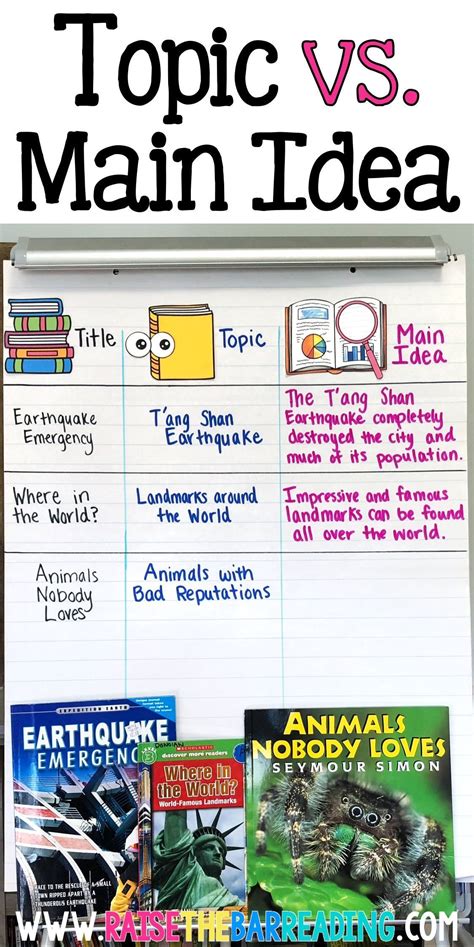 Topic vs.
Main Idea
Title
Topic
Main
Idea
Earthquake
Emergency
T'ang Shan
Earthquake
The T'ang Shan
Earthquake completely
destroyed the city and
much of its population.
Where in
the World?
Landmarks around
the World
Impressive and famous
landmarks can be found
all over the world.
Animals
Nobody
Loves
Animals with
Bad Reputations
EXPEDITION EARTH
EARTHQUAKE
EMERGENCY
RACE TO THE RESCUE OF A SMALL
TOWN RIPPED APART BY A
THUNDEROUS EARTHQUAKE
SCHOLASTIC
discover more readers
3
Where in
the World?
World-Famous Landmarks
ANIMALS
NOBODY LOVES
SEYMOUR SIMON
WWW.RAISETHEBARREADING.COM